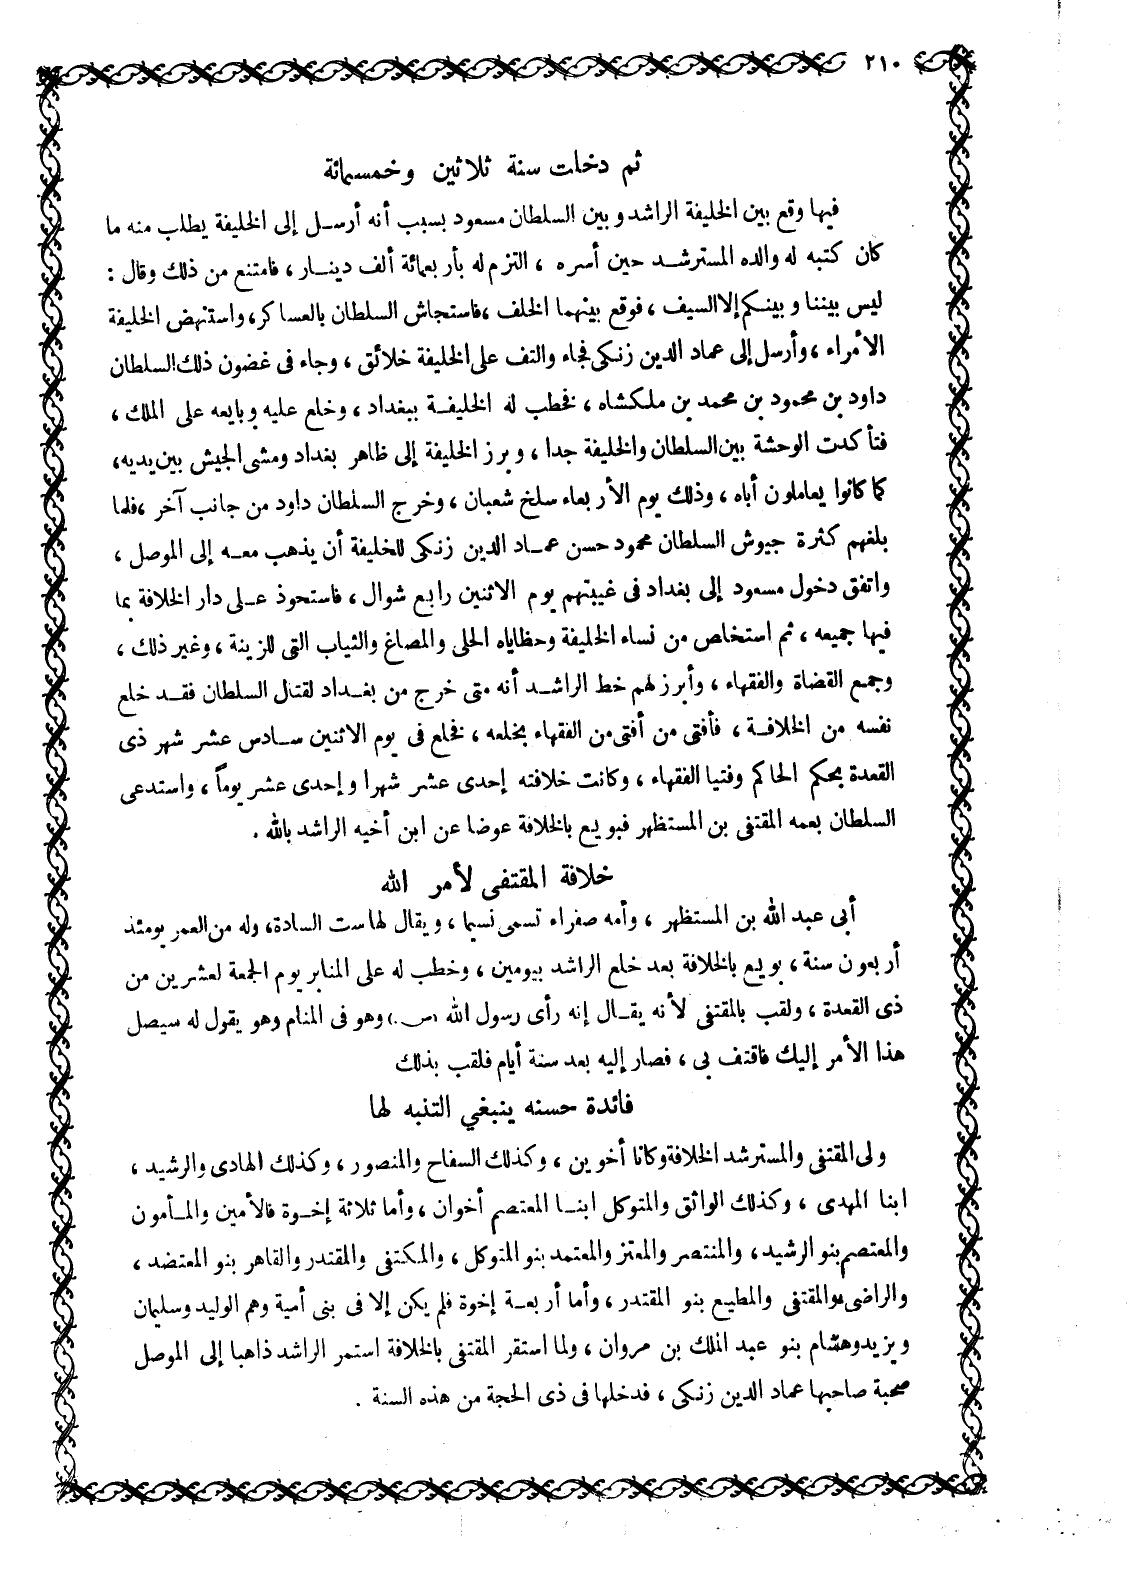 ٢١٠
ثم دخلت سنة ثلاثين وخمسمائة
فيها وقع بين الخليفة الراشد وبين السلطان مسعود بسبب أنه أرسل إلى الخليفة يطلب منه ما
كان كتبه له والده المسترشد حين أسره ، التزم له بأربعمائة ألف دينار ، فامتنع من ذلك وقال :
ليس بيننا وبينكم إلا السيف ، فوقع بينهما الخلف ، فاستجاش السلطان بالعساكر، واستنهض الخليفة
الأمراء ، وأرسل إلى عماد الدين زنكى فجاء والتف على الخليفة خلائق ، وجاء فى غضون ذلك السلطان
داود بن محمود بن محمد بن ملكشاه ، فخطب له الخليفة ببغداد ، وخلع عليه وبايعه على الملك ،
فتأكدت الوحشة بين السلطان والخليفة جدا ، وبرز الخليفة إلى ظاهر بغداد ومشى الجيش بين يديه،
كما كانوا يعاملون أباه ، وذلك يوم الأربعاء سلخ شعبان ، وخرج السلطان داود من جانب آخر ، فلما
بلغهم كثرة جيوش السلطان محمود حسن عماد الدين زنكى للخليفة أن يذهب معه إلى الموصل ،
واتفق دخول مسعود إلى بغداد فى غيبتهم يوم الاثنين رابع شوال ، فاستحوذ على دار الخلافة بما
فيها جميعه ، ثم استخلص من نساء الخليفة وحظاياه الحلى والمصاغ والثياب التى للزينة ، وغير ذلك ،
وجمع القضاة والفقهاء ، وأبرز لهم خط الراشد أنه متى خرج من بغداد لقتال السلطان فقد خلع
نفسه من الخلافة ، فأفتى من أفتى من الفقهاء بخلعه ، فخلع فى يوم الاثنين سادس عشر شهر ذى
القعدة بحكم الحاكم وفتيا الفقهاء ، وكانت خلافته إحدى عشر شهرا وإحدى عشر يوماً ، واستدعى
السلطان بعمه المقتفى بن المستظهر فبويع بالخلافة عوضا عن ابن أخيه الراشد بالله .
خلافة المقتفى لأمر الله
أبى عبد الله بن المستظهر ، وأمه صفراء تسمى نسيما ، ويقال لها ست السادة، وله من العمر يومئذ
أربعون سنة ، بويع بالخلافة بعد خلع الراشد بيومين ، وخطب له على المنابر يوم الجمعة لعشرين من
ذى القعدة ، ولقب بالمقتفى لأنه يقال إنه رأى رسول الله (ص.) وهو فى المنام وهو يقول له سيصل
هذا الأمر إليك فاقتف بى ، فصار إليه بعد ستة أيام فلقب بذلك
فائدة حسنه ينبغي التنبه لها
ولى المقتفى والمسترشد الخلافة وكانا أخوين ، وكذلك السفاح والمنصور ، وكذلك الهادى والرشيد ،
ابنا المهدى ، وكذلك الواثق والمتوكل ابنا المعتصم أخوان ، وأما ثلاثة إخوة فالأمين والمأمون
والمعتصم بنو الرشيد ، والمنتصر والمعتز والمعتمد بنو المتوكل ، والمكتفى والمقتدر والقاهر بنو المعتضد ،
والراضى والمقتفى والمطيع بنو المقتدر ، وأما أربعة إخوة فلم يكن إلا فى بنى أمية وهم الوليد وسليمان
ويزيد وهشام بنو عبد الملك بن مروان ، ولما استقر المقتفى بالخلافة استمر الراشد ذاهبا إلى الموصل
صحبة صاحبها عماد الدين زنكى ، فدخلها فى ذى الحجة من هذه السنة .